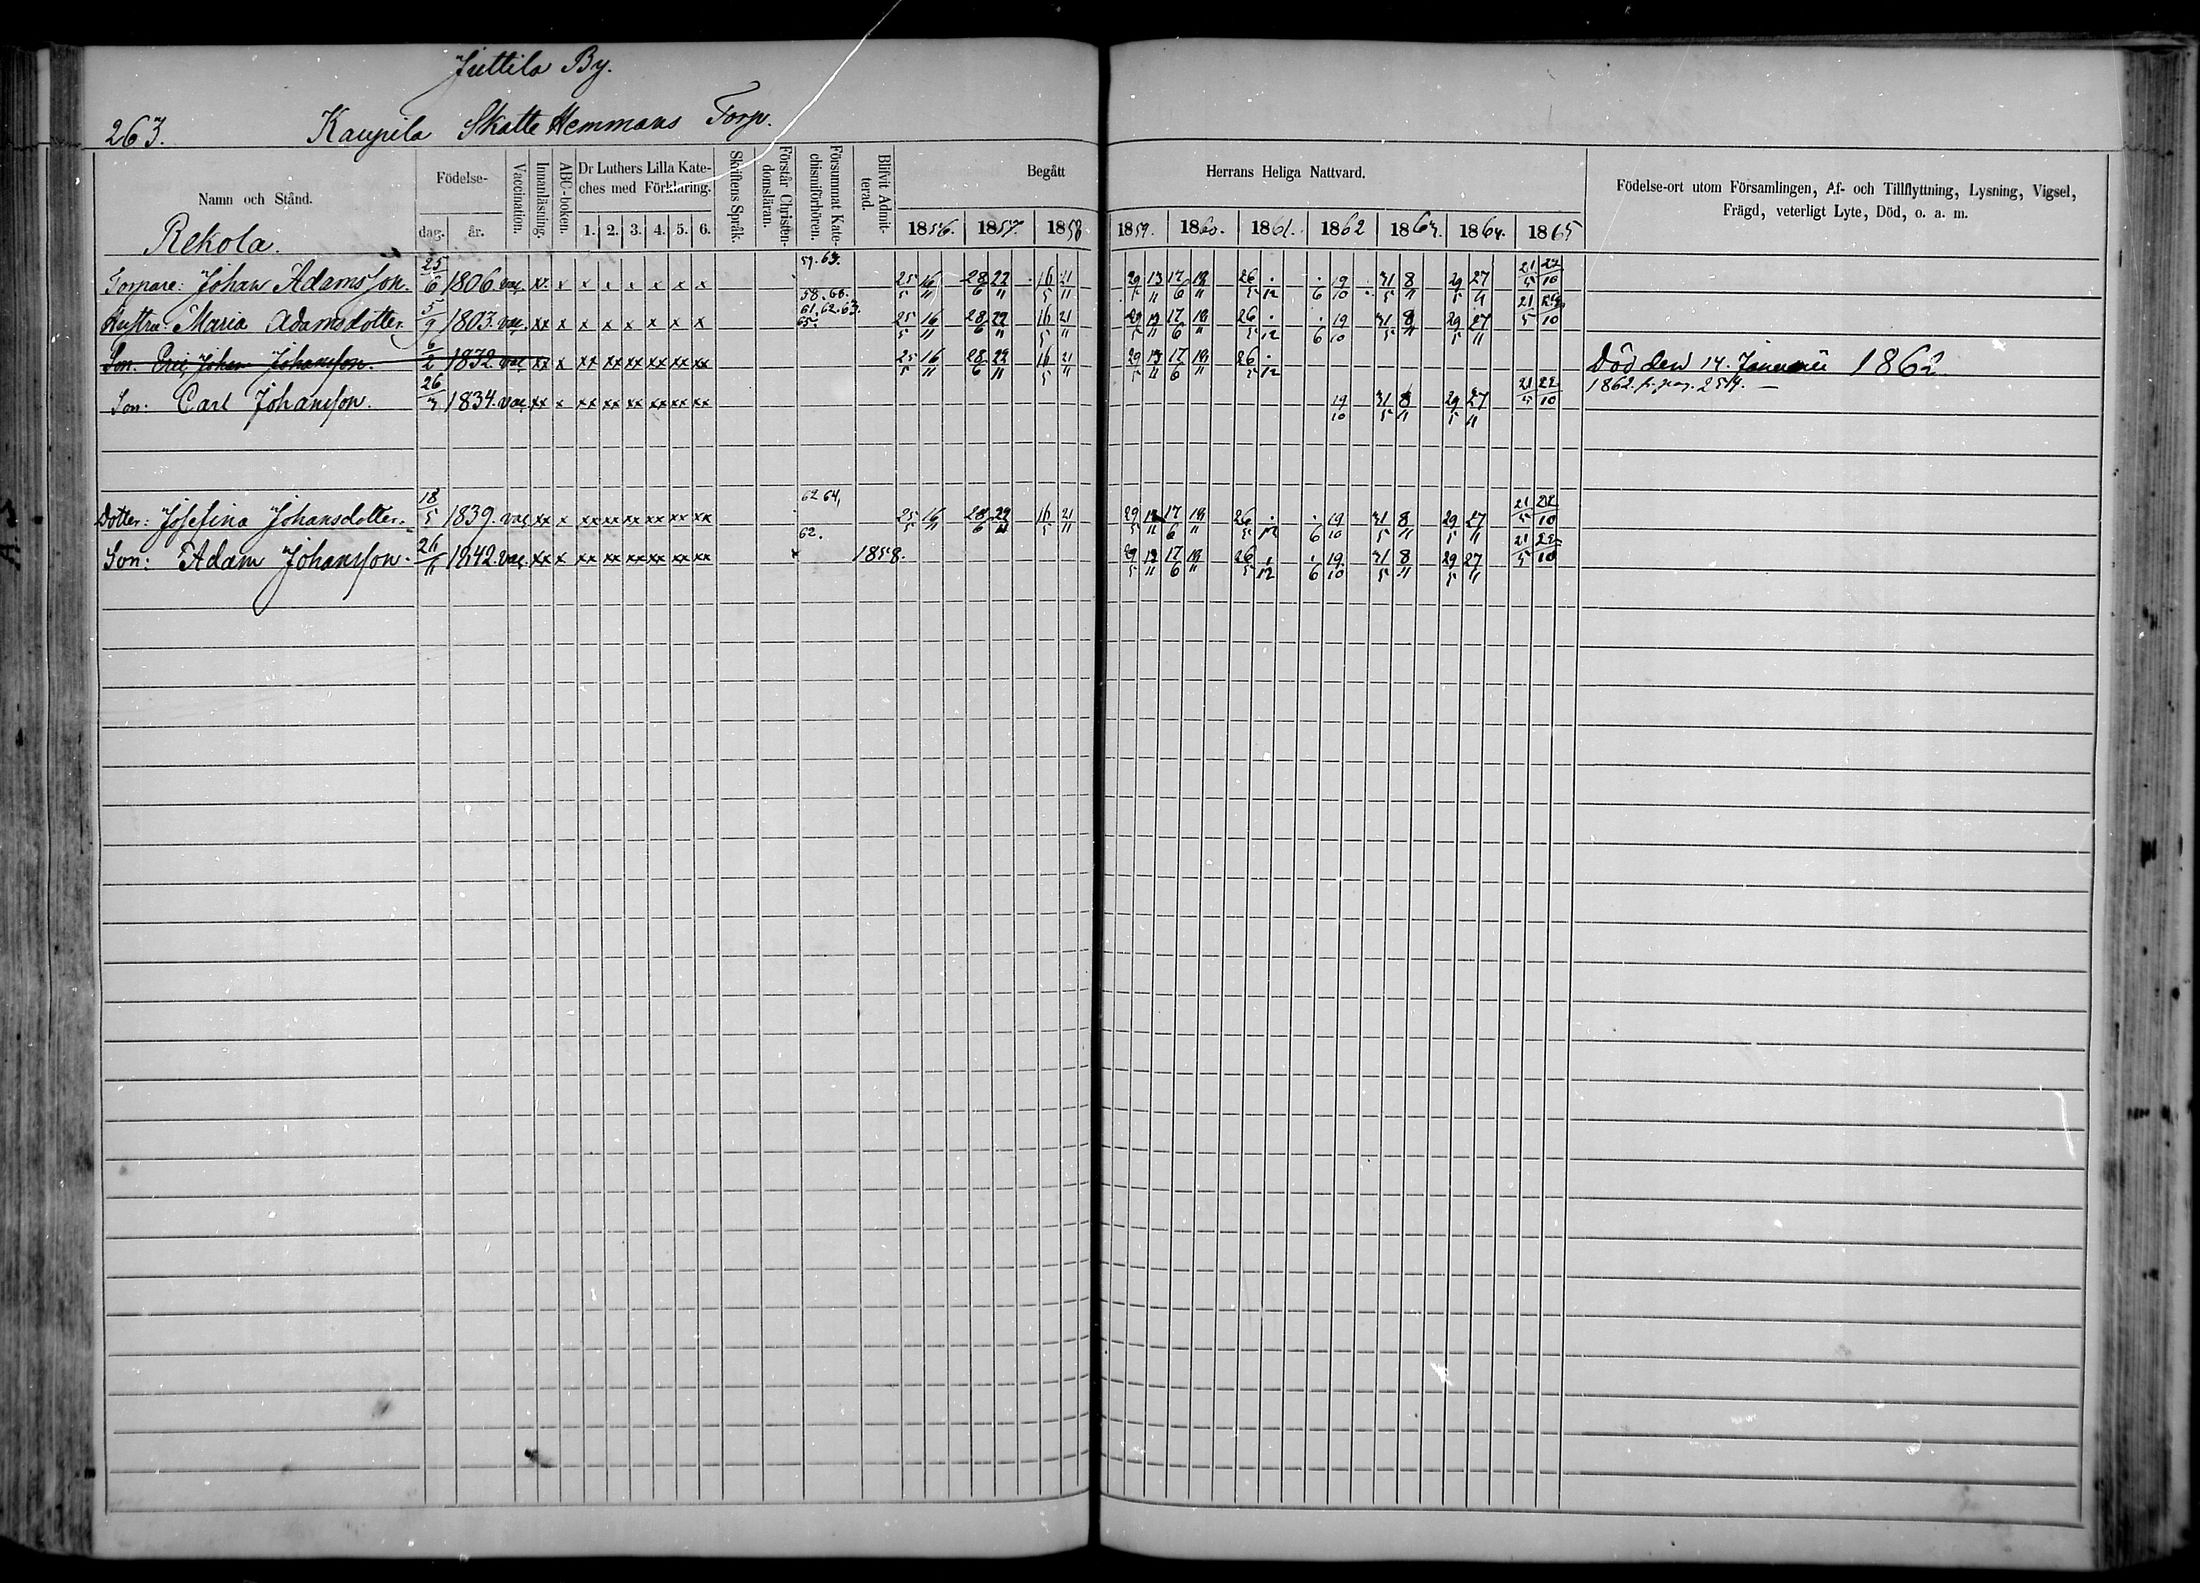 Juttila By.
263. Kaupila Skatte Hemmans Torp.
Namn och Stånd.
Födelse-
dag. år.
Vaccination.
Innanläsning.
ABC-boken.
Dr Luthers Lilla Kate-
ches med Förklaring.
1. 2. 3. 4. 5. 6.
Skriftens Språk.
Förstår Christen-
domsläran.
Försummat Kate-
chismiförhören.
Blifvit Admit-
terad.
Begått Herrans Heliga Nattvard.
1856. 1857. 1858 1859. 1860. 1861. 1862 1863. 1864. 1865
Födelse-ort utom Församlingen, Af- och Tillflyttning, Lysning, Vigsel,
Frägd, veterligt Lyte, Död, o. a. m.
Rekola.
Torpare: Johan Adamsson. 25/6 1806. vac. xx x x x x x x x 57. 63. 25/5 16/11 28/6 22/11 16/5 21/11 29/5 13/11 17/6 18/11 26/5 ./12 ./6 19/10 31/5 8/11 29/5 27/11 21/5 22/10
Hustru: Maria Adamsdotter. 5/9 1803. vac. xx x x x x x x x 58. 60. 61. 62. 63. 65. 25/5 16/11 28/6 22/11 16/5 21/11 29/5 13/11 17/6 18/11 26/5 ./12 ./6 19/10 31/5 8/11 29/5 27/11 21/5 22/10
Son. Eric Johan Johansson. 6/2 1832. vac xx x xx xx xx xx xx xx 25/5 16/11 28/6 22/11 16/5 21/11 29/5 13/11 17/6 18/11 26/5 ./12 Död den 14. Januarii 1862
Son: Carl Johansson. 1834. vac. xx x xx xx xx xx xx xx 19/10 31/5 8/11 29/5 27/11 21/5 22/10 1862. fr. pag.
Dotter: Josefina Johansdotter. 18/5 1839. vac xx x xx xx xx xx xx xx 62 64, 25/5 16/11 28/6 22/11 16/5 21/11 29/5 13/11 17/6 18/11 26/5 ./12 ./6 19/10 31/5 8/11 29/5 27/11 21/5 22/10
Son: Adam Johansson. 1842. vac. xx x xx xx xx xx xx xx 62. 1858. 29/5 13/11 17/6 18/11 26/5 ./12 ./6 19/10 31/5 8/11 29/5 27/11 21/5 22/10